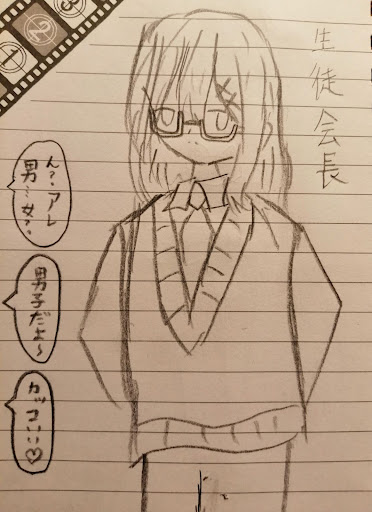 生徒会長
ん?アレ
男…女?
男子だよ〜
カッコいい♡
3
2
1